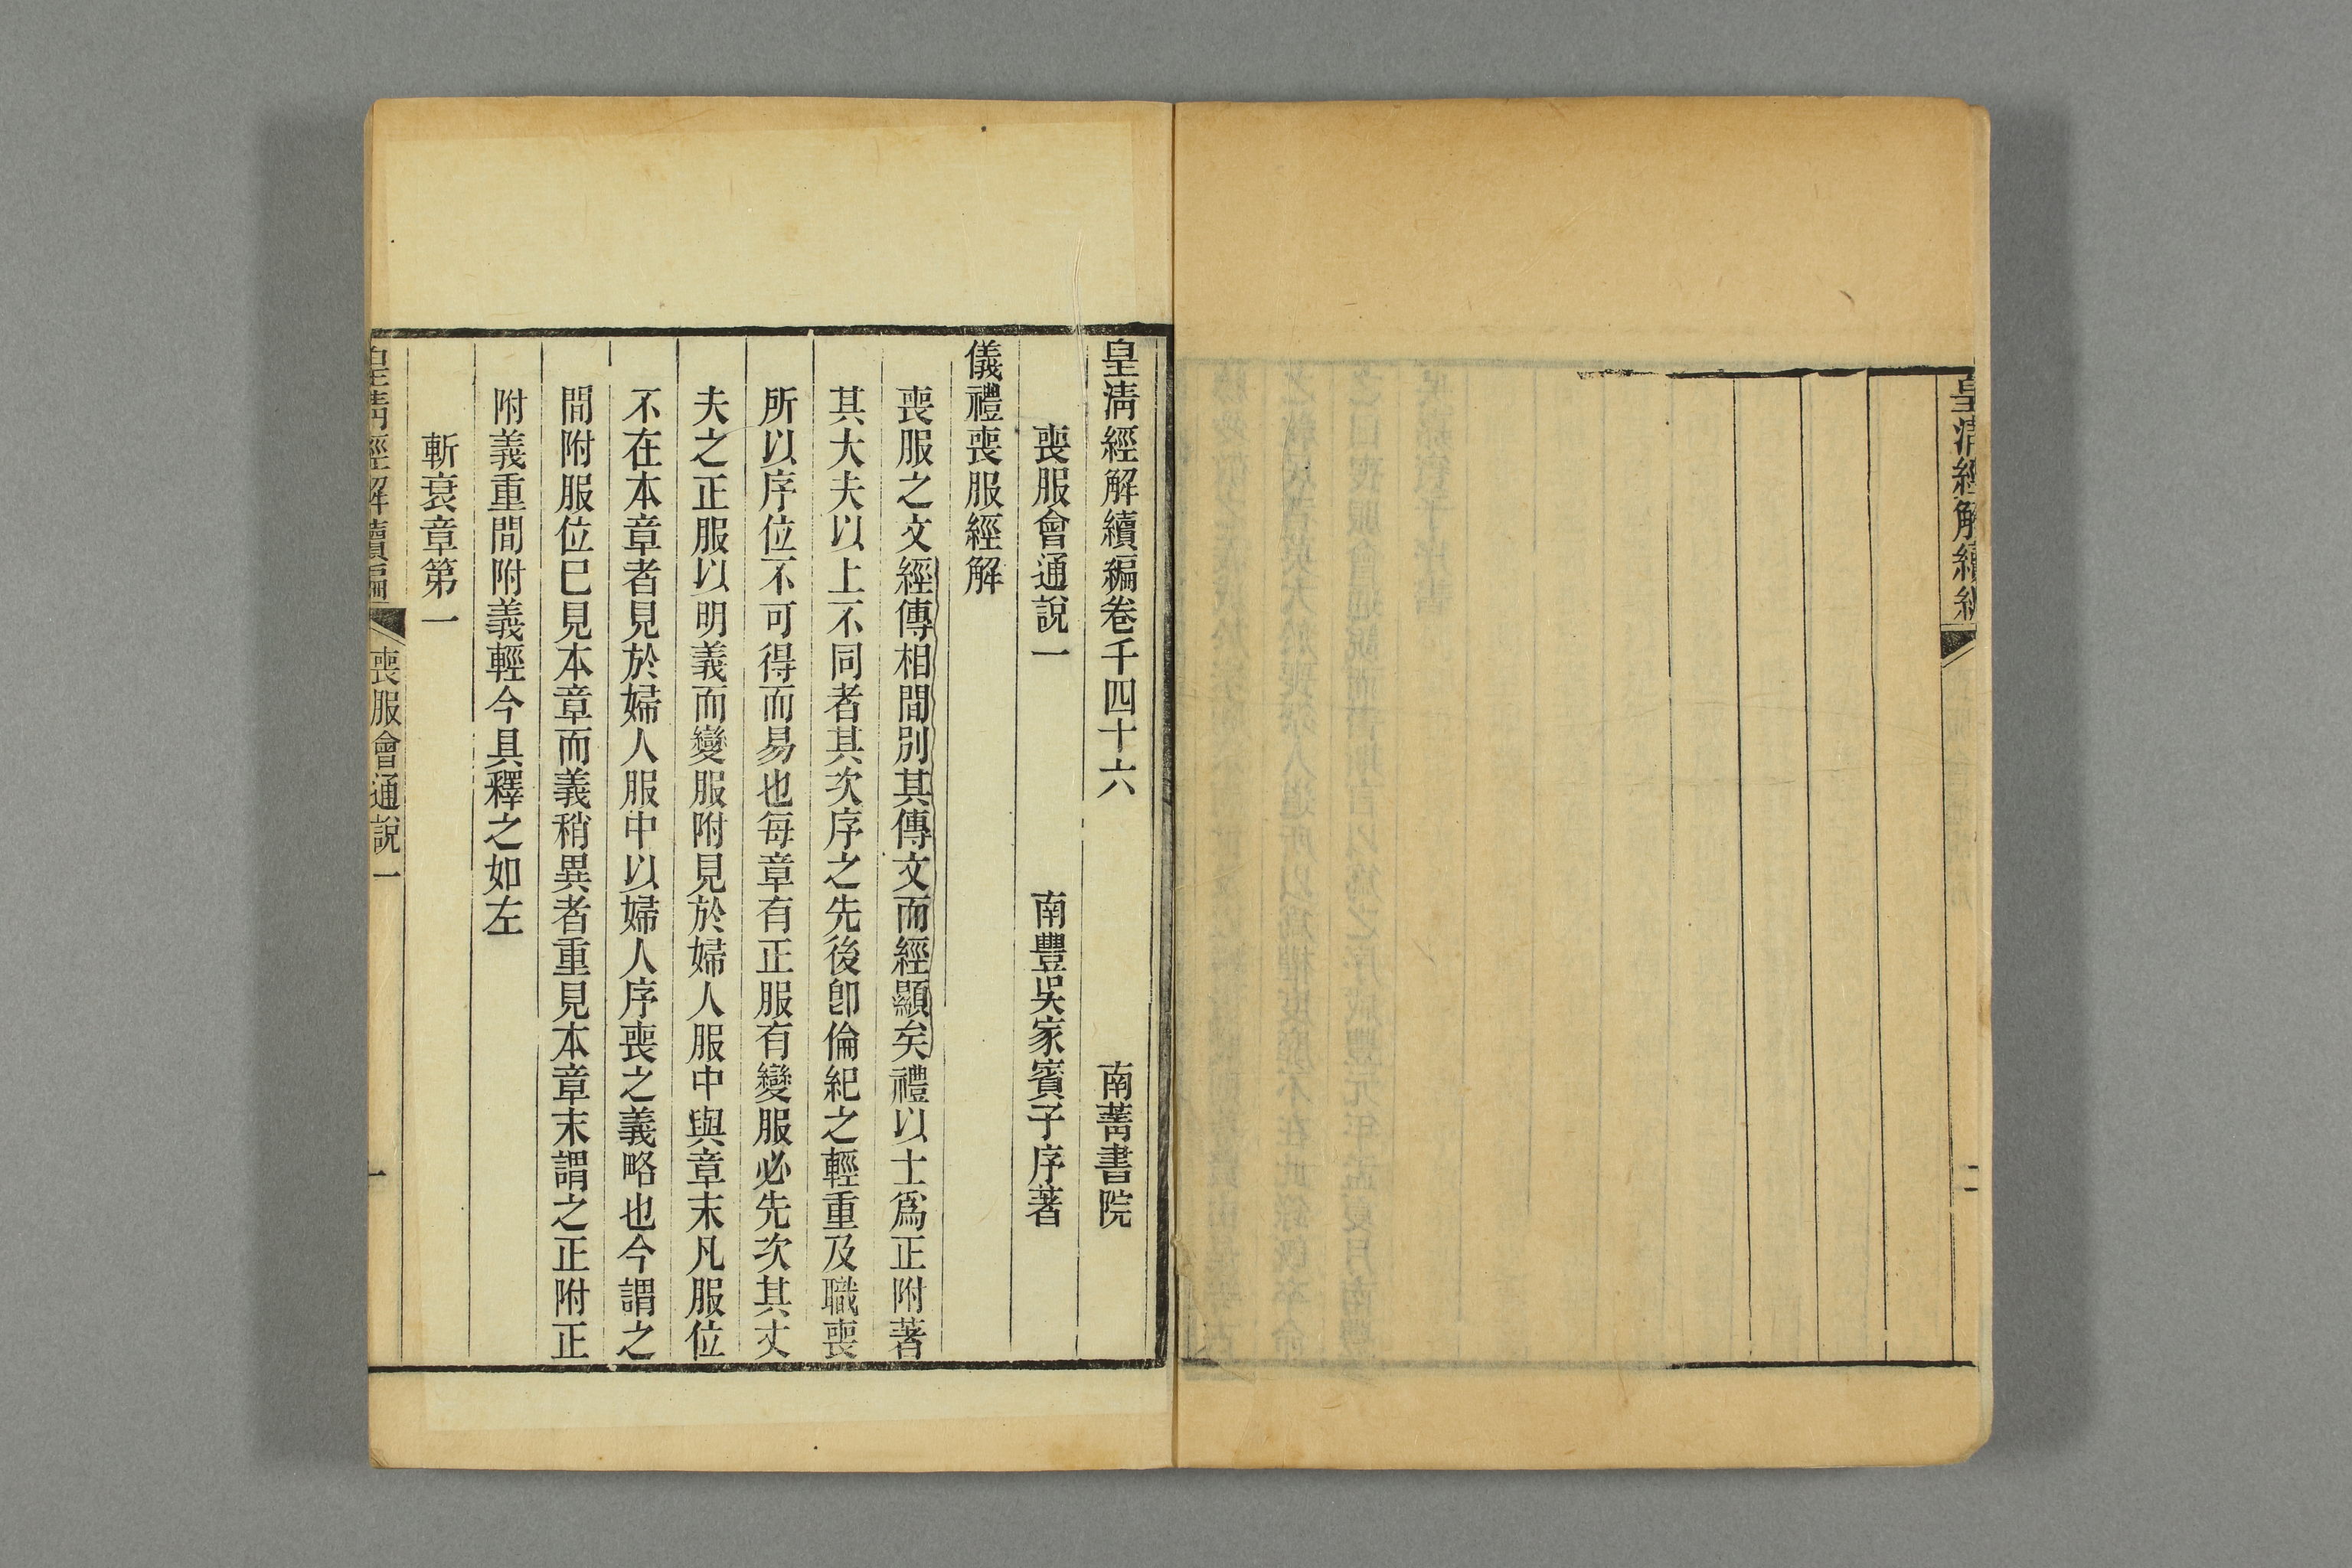 皇清經解續編
二
皇清經解續編卷千四十六　南菁書院
喪服會通說一　南豐吳家賓子序著
儀禮喪服經解
喪服之文經傳相間別其傳文而經顯矣禮以士爲正附著
其大夫以上不同者其次序之先後卽倫紀之輕重及職喪
所以序位不可得而易也每章有正服有變服必先次其丈
夫之正服以明義而變服附見於婦人服中與章末凡服位
不在本章者見於婦人服中以婦人序喪之義略也今謂之
間附服位已見本章而義稍異者重見本章末謂之正附正
附義重間附義輕今具釋之如左
斬衰章第一
皇清經解續編　喪服會通說一　一